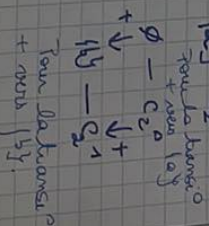 Pour la transi°
+ vers {a}
+ ↓
∅ — C₂⁰
{b} — C₂¹
↓ +
Pour la transi°
+ vers {b}.